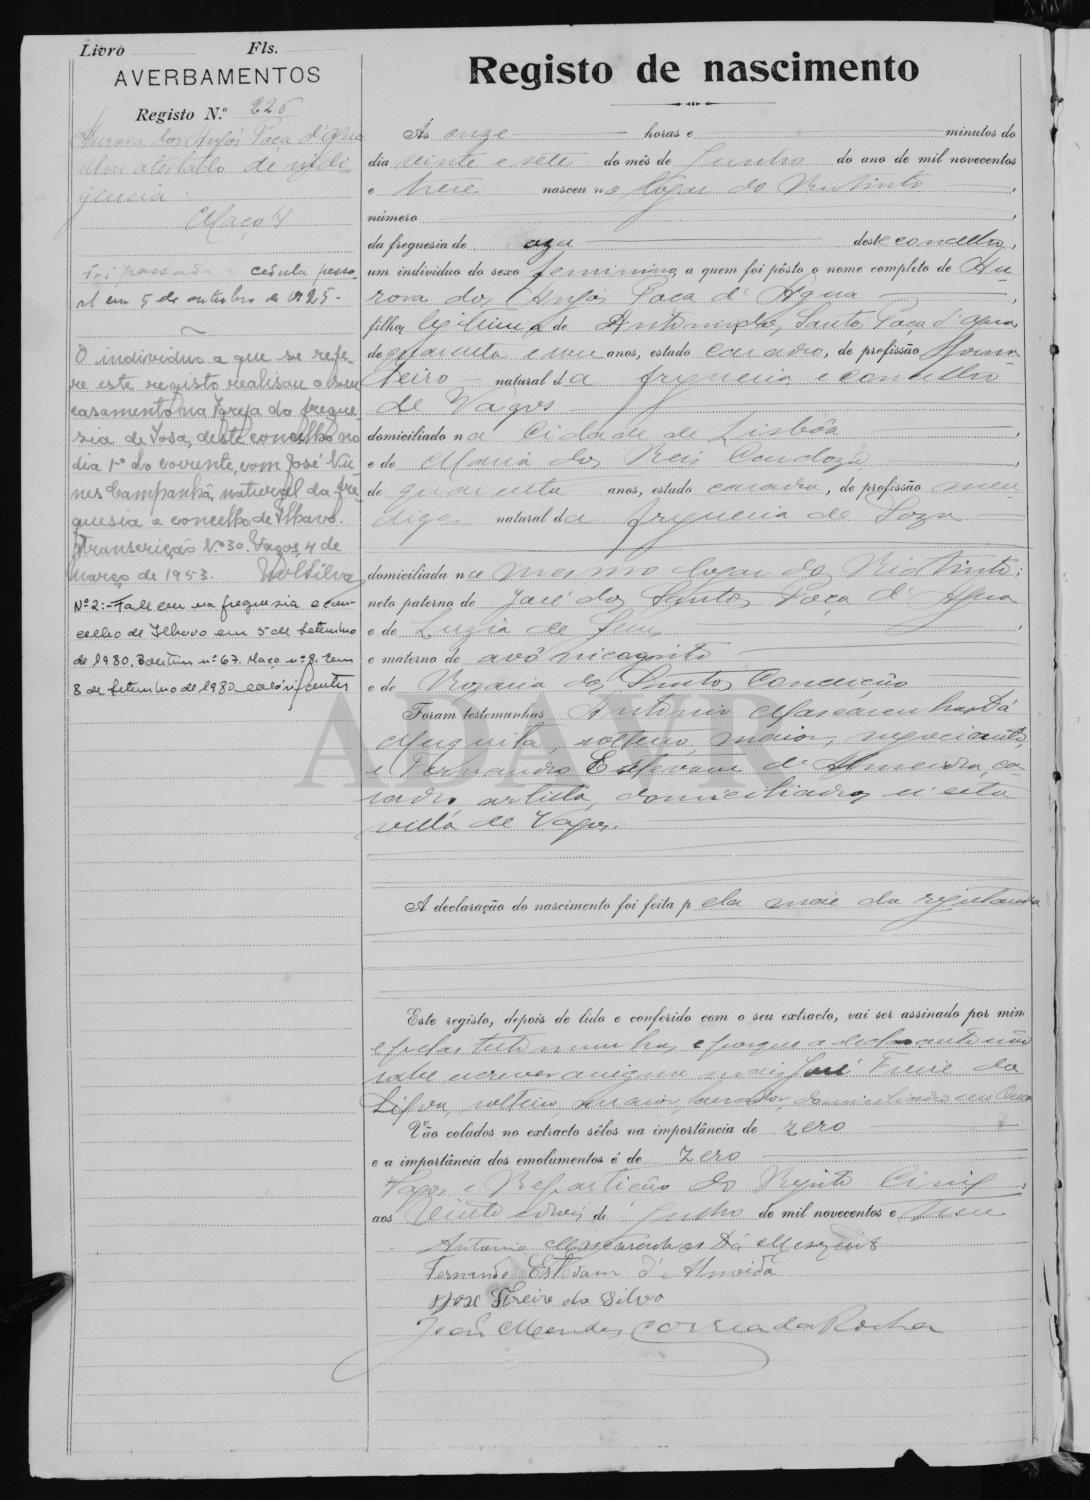 Livro Fls.
AVERBAMENTOS
Registo N.º 226
Aurora dos Anjos Poça d'Agua
Um atestado de indi-
gencia
Maço 4
Foi passada a cedula pesso-
al em 5 de outubro de 1925.
O individuo a que se refe-
re este registo realisou o seu
casamento na Igreja da fregue-
sia de Sosa, deste concelho no
dia 1º do corrente, com José Nu-
nes Campanhã, natural da fre-
guesia e concelho de Ilhavo.
Transcrição Nº 30. Vagos, 4 de
março de 1953.
Nº 2:-Faleceu na freguesia e con-
celho de Ilhavo em 5 de Setembro
de 1980. Boletim nº 67. Maço nº 8. Em
8 de Setembro de 1980
Registo de nascimento
Às onze horas e minutos do
dia vinte e sete do mês de Junho do ano de mil novecentos
e treze nasceu no lugar do Rio Tinto,
número
da freguesia de Soza deste concelho,
um individuo do sexo feminino a quem foi pôsto o nome completo de Au-
rora dos Anjos Poça d'Agua
filha legitima de Antonio dos Santos Poça d'agua,
de quarenta e um anos, estado casado, de profissão
natural da freguesia e concelho
de Vagos
domiciliado na Cidade de Lisbôa,
e de Maria dos Reis Cardoza,
de quarenta anos, estado casada, de profissão men-
diga natural da freguesia de Soza
domiciliada no mesmo lugar do Rio Tinto;
neto paterno de José dos Santos Poça d'Agua
e de Luzia de Jesus,
e materno de avô incognito
e de Rozaria dos Santos Conceição
Foram testemunhas Antonio Mascarenhas Dá
Mesquita, solteiro, maior, negociante,
e Fernando Estevam de Almeida, ca-
sado, artista, domiciliados n'esta
villa de Vagos.
A declaração do nascimento foi feita pela mãe da registanda
Este registo, depois de lido e conferido com o seu extracto, vai ser assinado por mim
e pelas testemunhas e porque a declarante não
sabe escrever assigna José Freire da
Silva, solteiro, maior, domiciliado em
Vão colados no extracto sêlos na importância de zero
e a importância dos emolumentos é de zero
Vagos e Repartição do Registo Civil,
aos de Junho de mil novecentos e treze
Antonio Mascarenhas Dá Mesquita
Fernando Estevam d'Almeida
José Freire da Silva
João Mendes Correia da Rocha
ADAVR